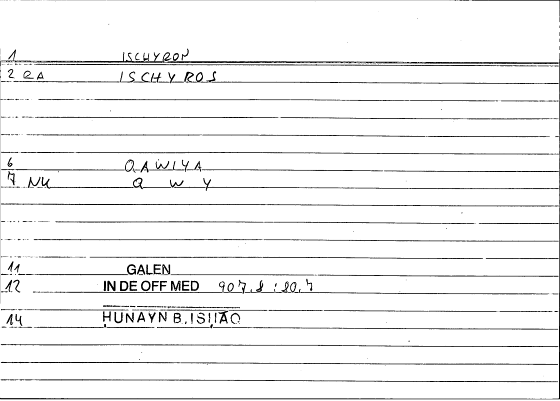 1 ISCHYRON
2 RA ISCHYROS
6 QAWIYA
7 NU Q W Y
11 GALEN
12 IN DE OFF MED 907.8 : 20.7
14 ḤUNAYN B.ISḤĀQ